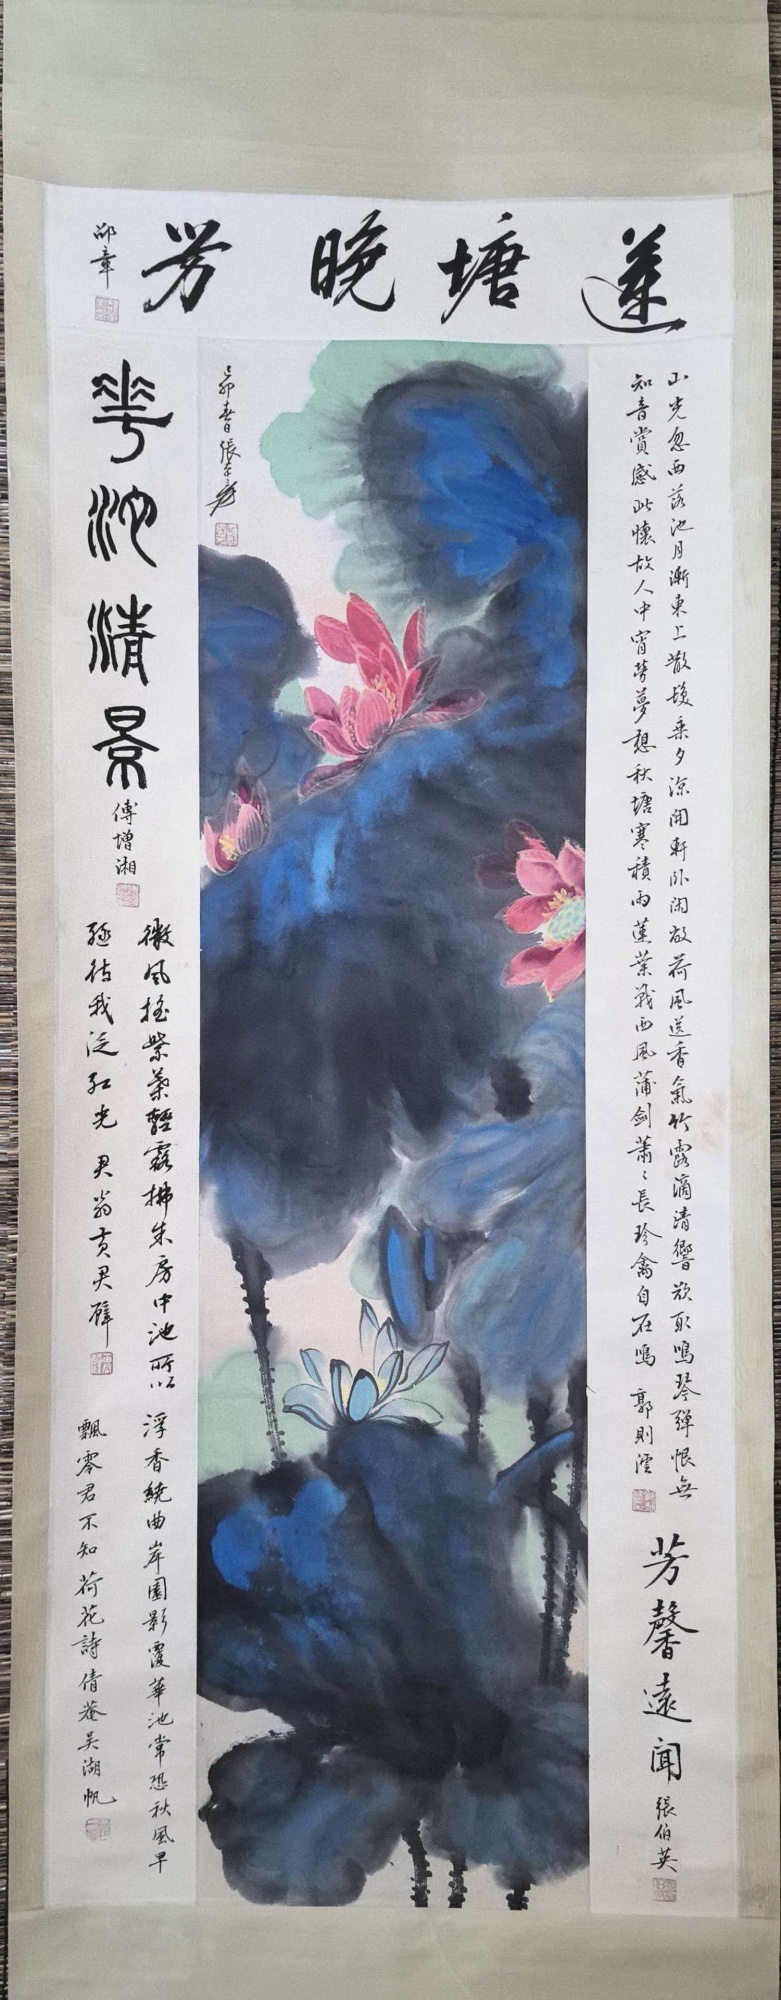 蓮塘晚芳
邵章
山光忽西落池月漸東上散髮乘夕涼開軒臥閑敞荷風送香氣竹露滴清響欲取鳴琴彈恨無
知音賞感此懷故人中宵勞夢想秋塘寒積雨蓮葉戰西風蒲劍蕭々長珍禽自在鳴 郭則澐
芳馨遠聞
張伯英
己卯春日張大千爰
華池清景
傅增湘
微風搖紫葉輕露拂朱房中池所以
綠待我泛紅光 君翁黃君璧
浮香繞曲岸圓影覆華池常恐秋風早
飄零君不知 荷花詩倩菴吳湖帆